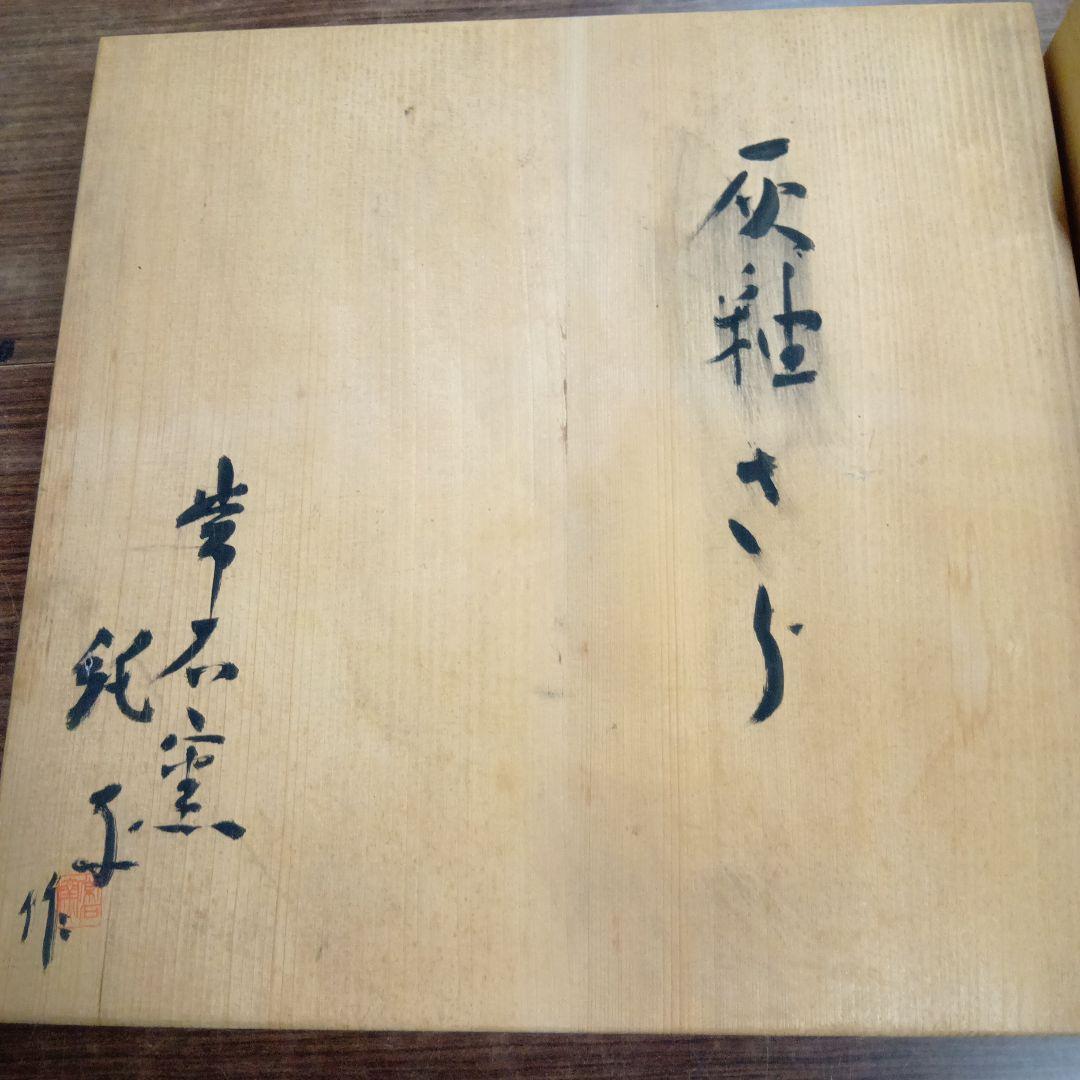 灰釉さら
常石窯
作